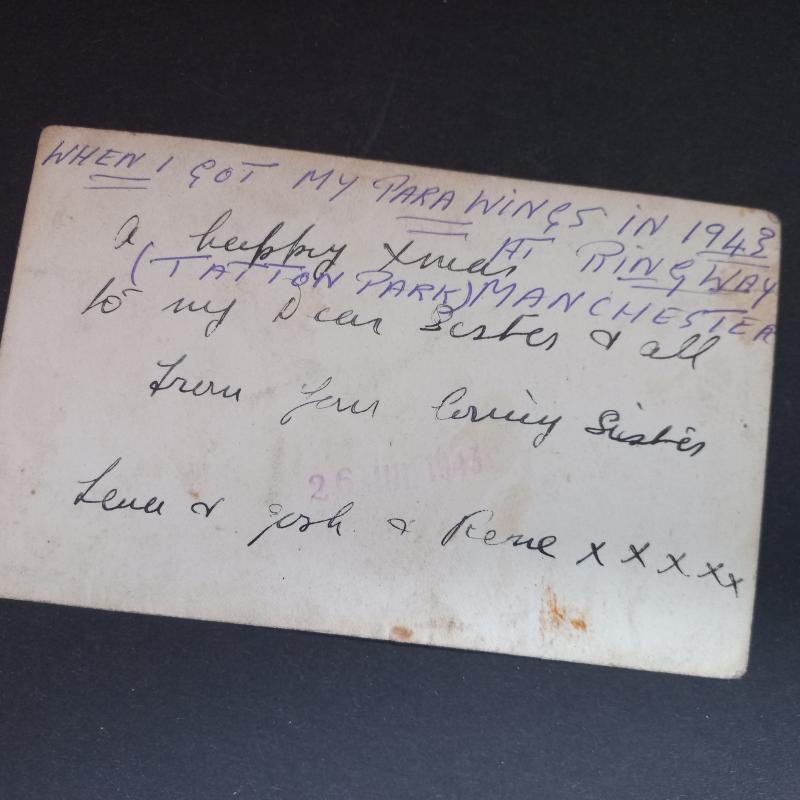 WHEN I GOT MY PARA WINGS IN 1943
AT RINGWAY
(TATTON PARK) MANCHESTER
A happy Xmas
to my Dear Sister & all
from your loving Sister
26 JUL 1943
Lena & Josh & Rene x x x x x